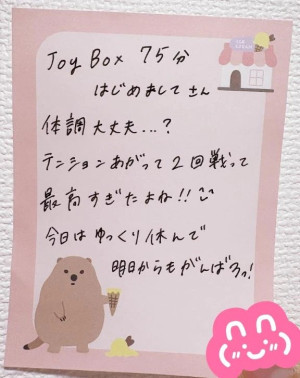 Joy Box 75分
はじめましてさん
体調大丈夫...?
テンションあがって2回戦って
最高すぎたよね!!
今日はゆっくり休んで
明日からもがんばろっ!